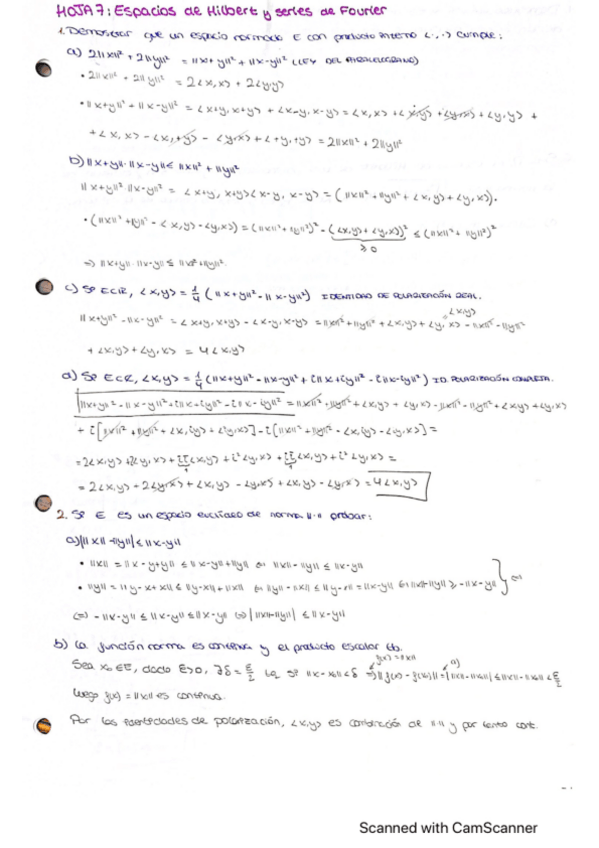 HOJA 7: Espacios de Hilbert y series de Fourier
1. Demostrar que un espacio normado E con producto interno <·,·> cumple:
a) 2||x||² + 2||y||² = ||x+y||² + ||x-y||² (LEY DEL PARALELOGRAMO)
• 2||x||² + 2||y||² = 2<x,x> + 2<y,y>
• ||x+y||² + ||x-y||² = <x+y, x+y> + <x-y, x-y> = <x,x> + <x,y> + <y,x> + <y,y> +
+ <x,x> - <x,+y> - <y,x> + <+y,+y> = 2||x||² + 2||y||²
b) ||x+y||·||x-y|| ≤ ||x||² + ||y||²
||x+y||² ||x-y||² = <x+y, x+y><x-y, x-y> = (||x||² + ||y||² + <x,y> + <y,x>).
• (||x||² + ||y||² - <x,y> - <y,x>) = (||x||² + ||y||²)² - (<x,y> + <y,x>)² ≤ (||x||² + ||y||²)²
≥ 0
⇒ ||x+y||·||x-y|| ≤ ||x||² + ||y||².
c) Si E⊂R, <x,y> = 1/4 (||x+y||² - ||x-y||²) IDENTIDAD DE POLARIZACIÓN REAL.
<x,y>
||x+y||² - ||x-y||² = <x+y, x+y> - <x-y, x-y> = ||x||² + ||y||² + <x,y> + <y,x> - ||x||² - ||y||²
+ <x,y> + <y,x> = 4<x,y>
d) Si E⊂C, <x,y> = 1/4 (||x+y||² - ||x-y||² + i||x+iy||² - i||x-iy||²) ID. POLARIZACIÓN COMPLEJA.
||x+y||² - ||x-y||² + i||x-iy||² - i||x-iy||² = ||x||² + ||y||² + <x,y> + <y,x> - ||x||² - ||y||² + <x,y> + <y,x>
+ i[||x||² + ||y||² + <x,iy> + <iy,x>] - i[||x||² + ||y||² - <x,iy> - <iy,x>] =
= 2<x,y> + 2<y,x> + <x,y> + i²<y,x> + <x,y> + i²<y,x> =
= 2<x,y> + 2<y,x> + <x,y> - <y,x> + <x,y> - <y,x> = 4<x,y>
2. Si E es un espacio euclídeo de norma ||·|| probar:
a) | ||x|| - ||y|| | ≤ ||x-y||
• ||x|| = ||x-y+y|| ≤ ||x-y|| + ||y|| ⇔ ||x|| - ||y|| ≤ ||x-y||
• ||y|| = ||y-x+x|| ≤ ||y-x|| + ||x|| ⇔ ||y|| - ||x|| ≤ ||y-x|| = ||x-y|| ⇔ ||x|| - ||y|| ≥ -||x-y|| } ⇔
⇔ -||x-y|| ≤ ||x|| - ||y|| ≤ ||x-y|| ⇔ | ||x|| - ||y|| | ≤ ||x-y||
b) La función norma es continua y el producto escalar tb.
f(x) = ||x|| a)
Sea x₀∈E, dado ε>0, ∃δ = ε/2 t.q. si ||x-x₀|| < δ ⇒ ||f(x) - f(x₀)|| = | ||x|| - ||x₀|| | ≤ ||x-x₀|| < ε/2
luego f(x) = ||x|| es continua.
Por las identidades de polarización, <x,y> es combinación de ||·|| y por tanto cont.
Scanned with CamScanner